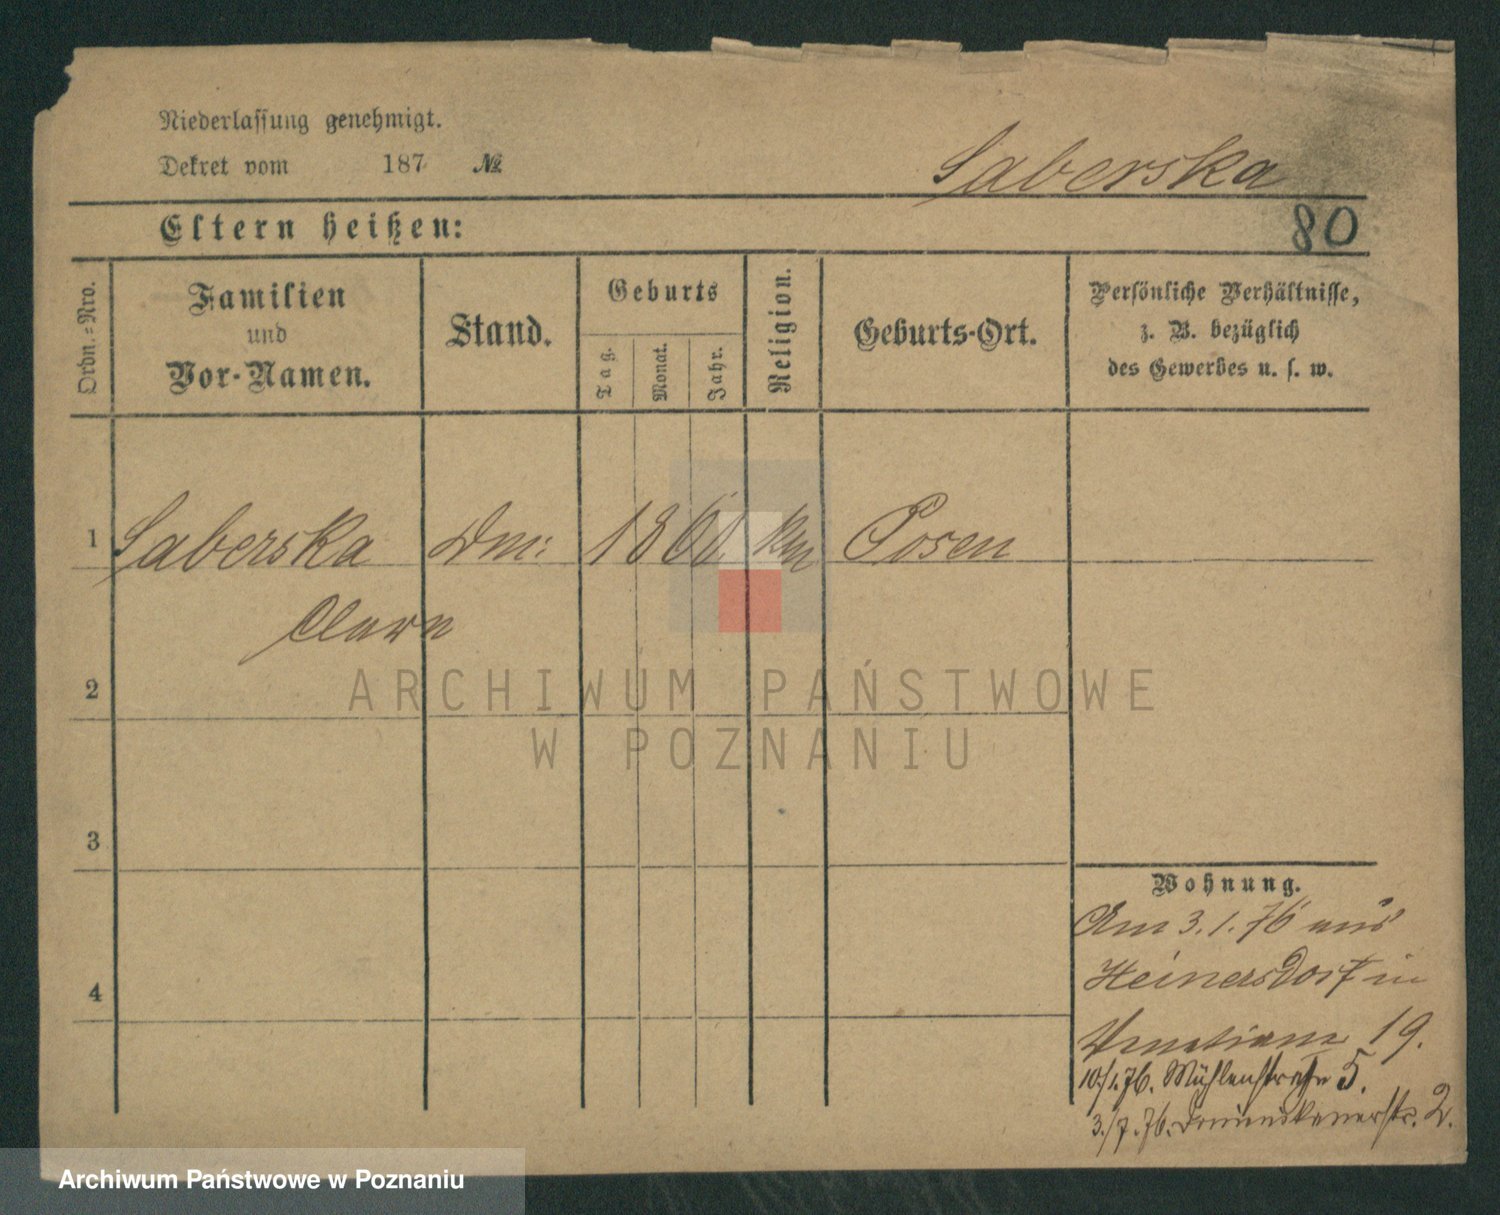 Niederlassung genehmigt.
Dekret vom 187 №
Saberska
Eltern heißen:
80
Ordn.=Nro.
Familien
und
Vor-Namen.
Stand.
Geburts
Tag.
Monat.
Jahr.
Religion.
Geburts-Ort.
Persönliche Verhältnisse,
z. B. bezüglich
des Gewerbes u. s. w.
1 Saberska Dm: 1860 Posen
2
ARCHIWUM PAŃSTWOWE
W POZNANIU
3
4
Wohnung.
Am 3.1.76 aus
Heinersdorf in
19.
10/1.76. Mühlenstraße 5.
3./7.76. Dominikanerstr. 2.
Archiwum Państwowe w Poznaniu